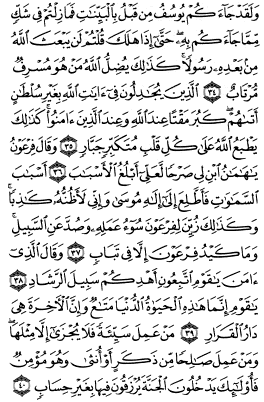 وَلَقَدْ جَآءَكُمْ يُوسُفُ مِن قَبْلُ بِٱلْبَيِّنَٰتِ فَمَا زِلْتُمْ فِى شَكٍّ
مِّمَّا جَآءَكُم بِهِۦ ۖ حَتَّىٰٓ إِذَا هَلَكَ قُلْتُمْ لَن يَبْعَثَ ٱللَّهُ
مِنۢ بَعْدِهِۦ رَسُولًا ۚ كَذَٰلِكَ يُضِلُّ ٱللَّهُ مَنْ هُوَ مُسْرِفٌ
مُّرْتَابٌ ٣٤ ٱلَّذِينَ يُجَٰدِلُونَ فِىٓ ءَايَٰتِ ٱللَّهِ بِغَيْرِ سُلْطَٰنٍ
أَتَىٰهُمْ ۖ كَبُرَ مَقْتًا عِندَ ٱللَّهِ وَعِندَ ٱلَّذِينَ ءَامَنُوا۟ ۚ كَذَٰلِكَ
يَطْبَعُ ٱللَّهُ عَلَىٰ كُلِّ قَلْبِ مُتَكَبِّرٍ جَبَّارٍ ٣٥ وَقَالَ فِرْعَوْنُ
يَٰهَٰمَٰنُ ٱبْنِ لِى صَرْحًا لَّعَلِّىٓ أَبْلُغُ ٱلْأَسْبَٰبَ ٣٦ أَسْبَٰبَ
ٱلسَّمَٰوَٰتِ فَأَطَّلِعَ إِلَىٰٓ إِلَٰهِ مُوسَىٰ وَإِنِّى لَأَظُنُّهُۥ كَٰذِبًا ۚ
وَكَذَٰلِكَ زُيِّنَ لِفِرْعَوْنَ سُوٓءُ عَمَلِهِۦ وَصُدَّ عَنِ ٱلسَّبِيلِ ۚ
وَمَا كَيْدُ فِرْعَوْنَ إِلَّا فِى تَبَابٍ ٣٧ وَقَالَ ٱلَّذِىٓ
ءَامَنَ يَٰقَوْمِ ٱتَّبِعُونِ أَهْدِكُمْ سَبِيلَ ٱلرَّشَادِ ٣٨
يَٰقَوْمِ إِنَّمَا هَٰذِهِ ٱلْحَيَوٰةُ ٱلدُّنْيَا مَتَٰعٌ وَإِنَّ ٱلْءَاخِرَةَ هِىَ
دَارُ ٱلْقَرَارِ ٣٩ مَنْ عَمِلَ سَيِّئَةً فَلَا يُجْزَىٰٓ إِلَّا مِثْلَهَا ۖ
وَمَنْ عَمِلَ صَٰلِحًا مِّن ذَكَرٍ أَوْ أُنثَىٰ وَهُوَ مُؤْمِنٌ
فَأُو۟لَٰٓئِكَ يَدْخُلُونَ ٱلْجَنَّةَ يُرْزَقُونَ فِيهَا بِغَيْرِ حِسَابٍ ٤٠